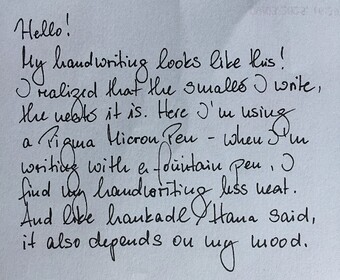 Hello!
My handwriting looks like this!
I realized that the smaller I write,
the neater it is. Here I'm using
a Pigma Micron Pen - when I'm
writing with a fountain pen, I
find my handwriting less neat.
And like hankadl/Hana said,
it also depends on my mood.